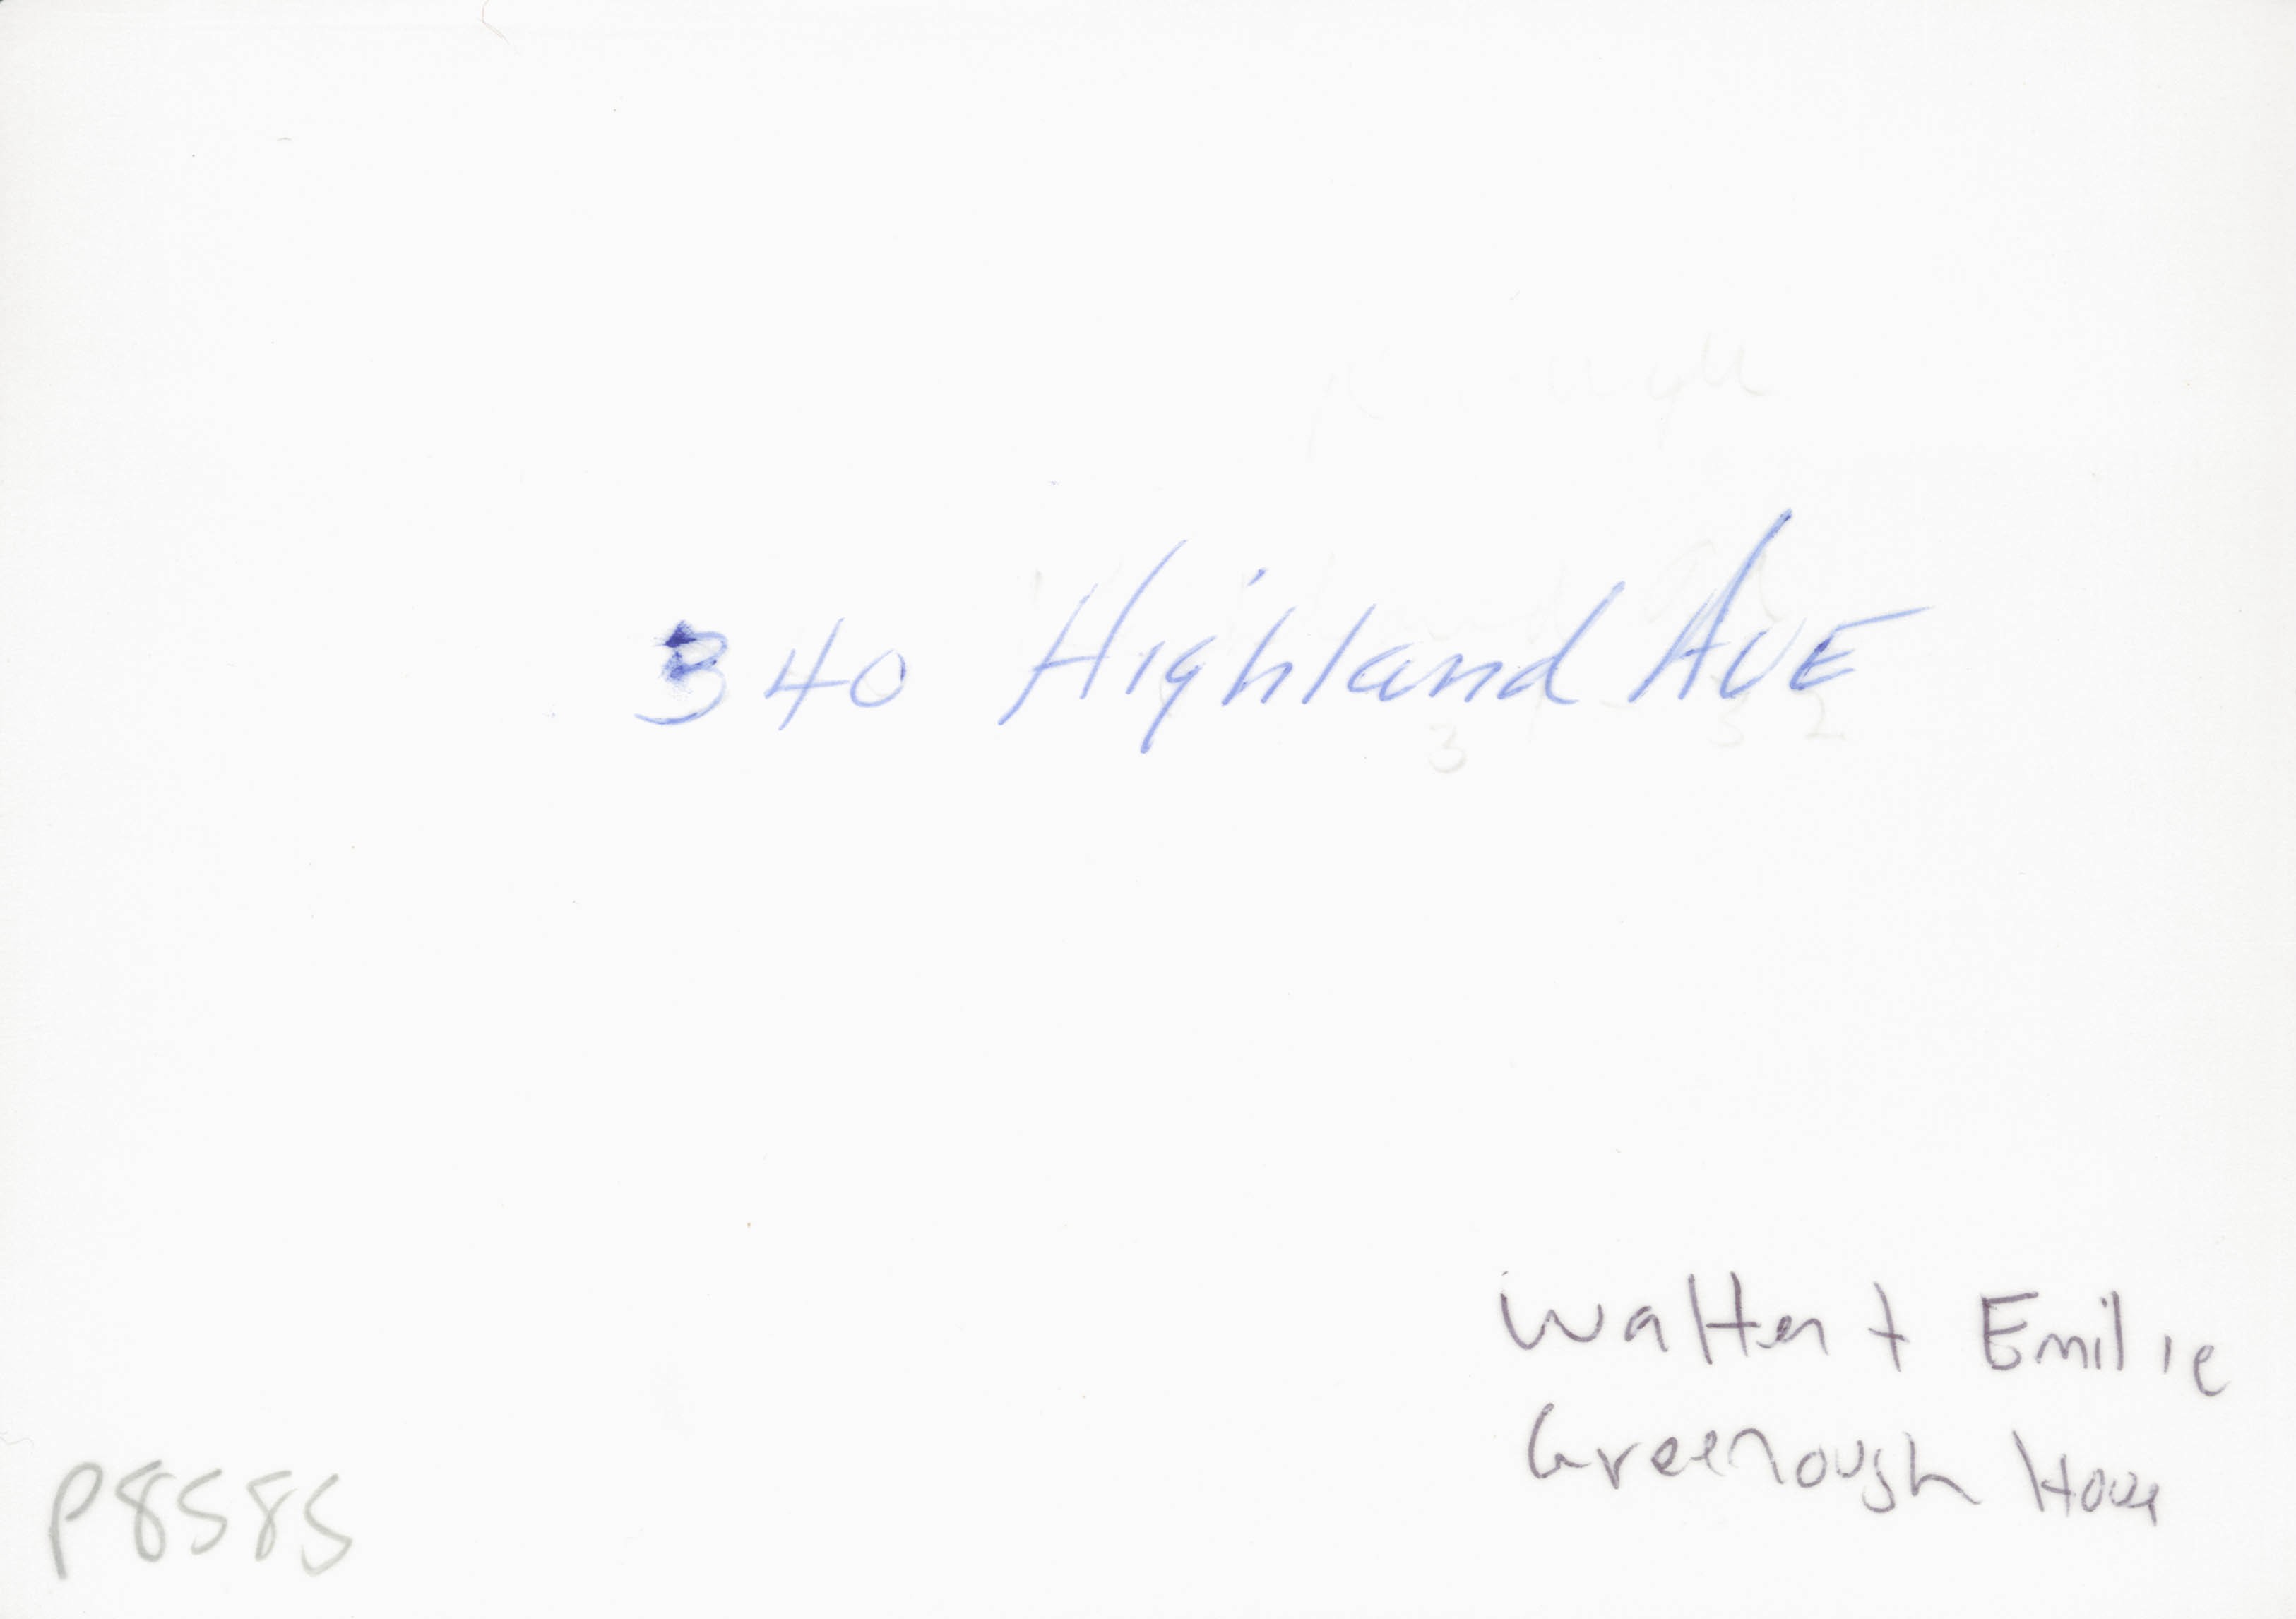 340 Highland AVE
Walter + Emilie
Greenough House
P8585